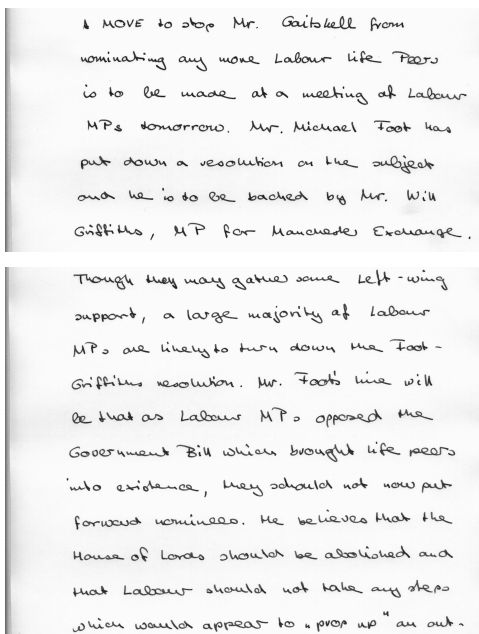 A MOVE to stop Mr. Gaitskell from
nominating any more Labour life Peers
is to be made at a meeting of Labour
MPs tomorrow. Mr. Michael Foot has
put down a resolution on the subject
and he is to be backed by Mr. Will
Griffiths, MP for Manchester Exchange.
Though they may gather some Left-wing
support, a large majority of Labour
MPs are likely to turn down the Foot-
Griffiths resolution. Mr. Foot's line will
be that as Labour MPs opposed the
Government Bill which brought life peers
into existence, they should not now put
forward nominees. He believes that the
House of Lords should be abolished and
that Labour should not take any steps
which would appear to „prop up" an out-